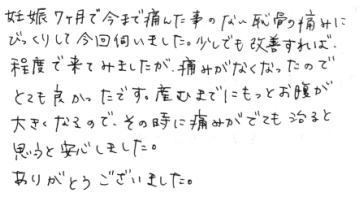 妊娠7ヶ月で今まで痛んだ事のない恥骨の痛みに
びっくりして今回伺いました。少しでも改善すれば、
程度で来てみましたが、痛みがなくなったので
とても良かったです。産むまでにもっとお腹が
大きくなるので、その時に痛みがでても治ると
思うと安心しました。
ありがとうございました。